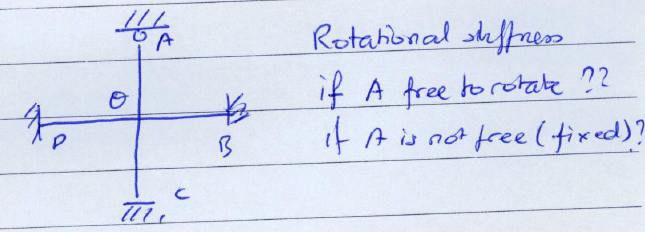 A
Rotational stiffness
θ
if A free to rotate ??
D
B
if A is not free (fixed)?
C